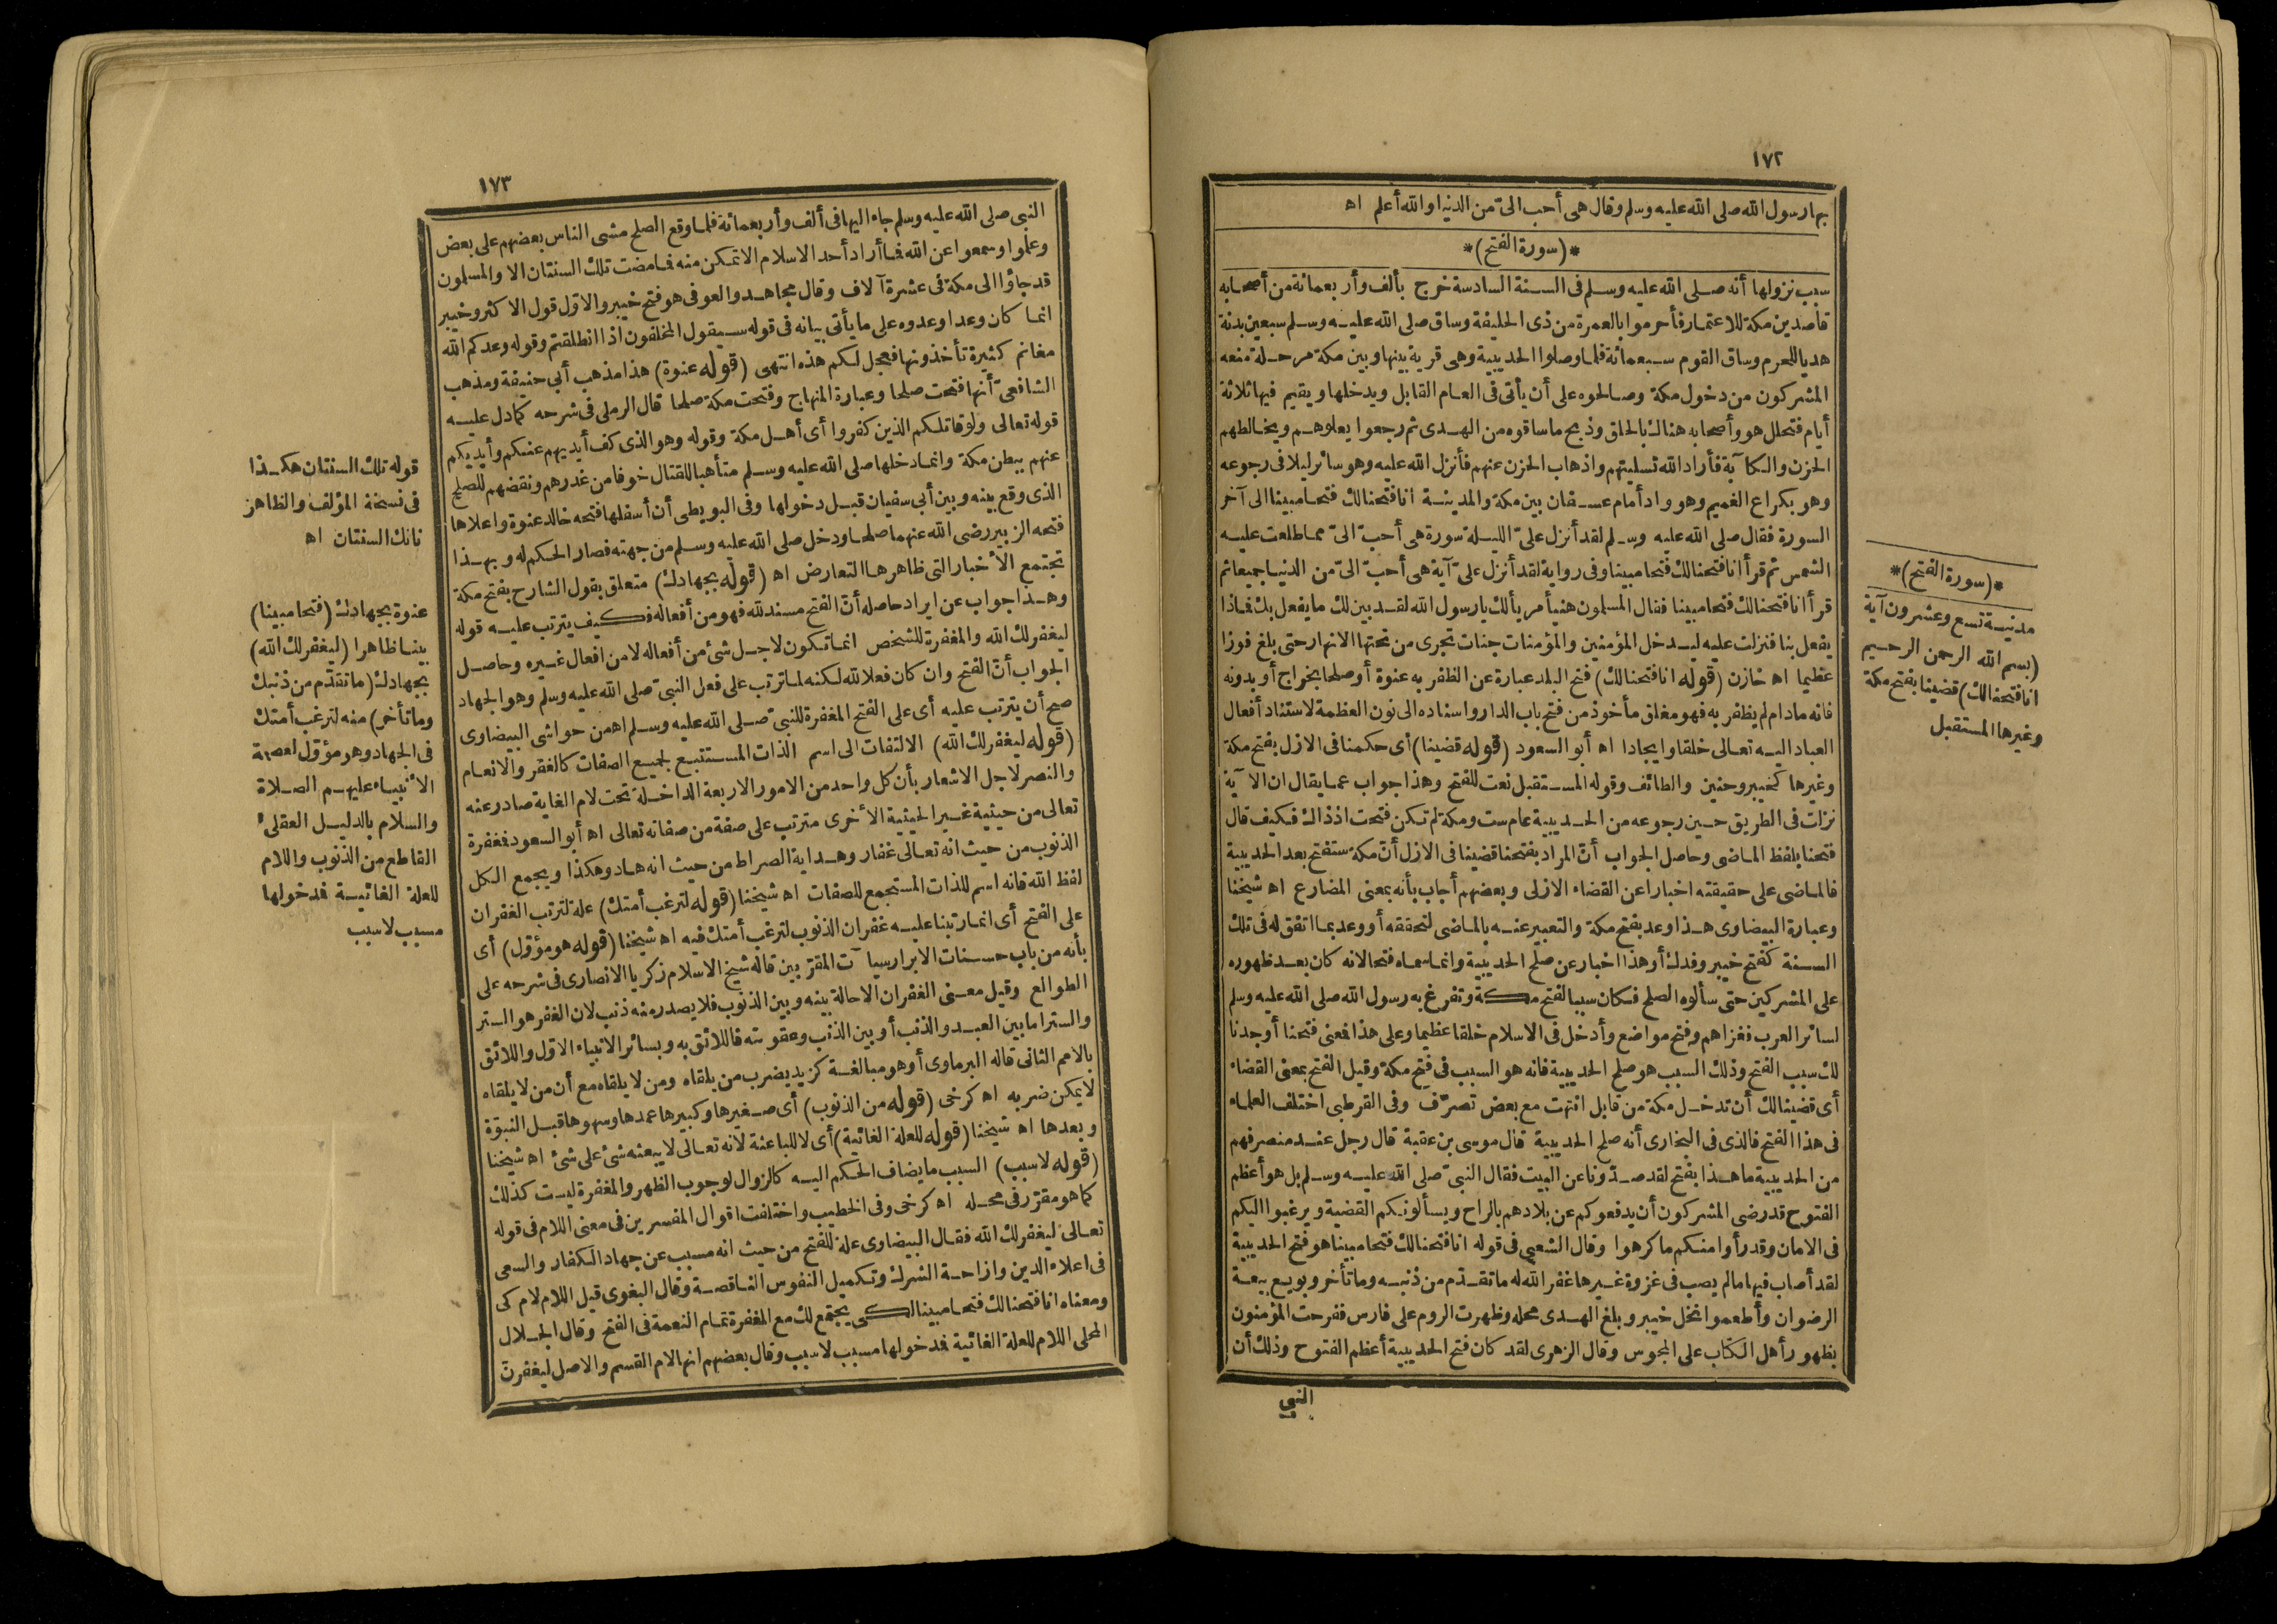 ١٧٢
بها رسول الله صلى الله عليه وسلم وقال هى أحب الىّ من الدنيا والله أعلم اه
*(سورة الفتح)*
سبب نزولها أنه صلى الله عليه وسلم فى السنة السادسة خرج بألف وأربعمائة من أصحابه
قاصدين مكة للاعتمار فأحرموا بالعمرة من ذى الحليفة وساق صلى الله عليه وسلم سبعين بدنة
هديا للحرم وساق القوم سبعمائة فلما وصلوا الحديبية وهى قرية بينها وبين مكة مرحلة منعه
المشركون من دخول مكة وصالحوه على أن يأتى فى العام القابل ويدخلها ويقيم فيها ثلاثة
أيام فتحلل هو وأصحابه هناك بالحلق وذبح ما ساقوه من الهدى ثم رجعوا يعلوهم ويخالطهم
الحزن والكآبة فأراد الله تسليتهم واذهاب الحزن عنهم فأنزل الله عليه وهو سائر ليلا فى رجوعه
وهو بكراع الغميم وهو واد أمام عسفان بين مكة والمدينة انا فتحنا لك فتحا مبينا الى آخر
السورة فقال صلى الله عليه وسلم لقد أنزل علىّ الليلة سورة هى أحبّ الىّ مما طلعت عليه
الشمس ثم قرأ انا فتحنا لك فتحا مبينا وفى رواية لقد أنزل علىّ آية هى أحبّ الىّ من الدنيا جميعا ثم
قرأ انا فتحنا لك فتحا مبينا فقال المسلمون هنيأ مريأ لك يا رسول الله لقد بين لك ما يفعل بك فماذا
يفعل بنا فنزلت عليه ليدخل المؤمنين والمؤمنات جنات تجرى من تحتها الانهار حتى بلغ فوزا
عظيما اه خازن (قوله انا فتحنا لك) فتح البلد عبارة عن الظفر به عنوة أو صلحا بخراج أو بدونه
فانه ما دام لم يظفر به فهو مغلق مأخوذ من فتح باب الدار واسناده الى نون العظمة لاستناد أفعال
العباد اليه تعالى خلقا وايجادا اه أبو السعود (قوله قضينا) أى حكمنا فى الازل بفتح مكة
وغيرها كخيبر وحنين والطائف وقوله المستقبل نعت للفتح وهذا جواب عما يقال ان الآية
نزات فى الطريق حين رجوعه من الحديبية عام ست ومكة لم تكن فتحت اذ ذاك فكيف قال
فتحنا بلفظ الماضى وحاصل الجواب أنّ المراد بفتحنا قضينا فى الازل أنّ مكة ستفتح بعد الحديبية
فالماضى على حقيقته اخبارا عن القضاء الازلى وبعضهم أجاب بأنه بمعنى المضارع اه شيخنا
وعبارة البيضاوى هذا وعد بفتح مكة والتعبير عنه بالماضى لتحققه أو وعد بما اتفق له فى تلك
السنة كفتح خيبر وفدك أو هذا اخبار عن صلح الحديبية وانما سماه فتحا لانه كان بعد ظهوره
على المشركين حتى سألوه الصلح فكان سببا لفتح مكة وتفرغ به رسول الله صلى الله عليه وسلم
لسائر العرب فغزاهم وفتح مواضع وأدخل فى الاسلام خلقا عظيما وعلى هذا فمعنى فتحنا أوجدنا
لك سبب الفتح وذلك السبب هو صلح الحديبية فانه هو السبب فى فتح مكة وقيل الفتح بمعنى القضاء
أى قضينا لك أن تدخل مكة من قابل انتهت مع بعض تصرّف وفى القرطبى اختلف العلماء
فى هذا الفتح فالذى فى البخارى أنه صلح الحديبية قال موسى بن عقبة قال رجل عند منصرفهم
من الحديبية ما هذا بفتح لقد صدّونا عن البيت فقال النبىّ صلى الله عليه وسلم بل هو أعظم
الفتوح قد رضى المشركون أن يدفعوكم عن بلادهم بالراح ويسألونكم القضية ويرغبوا اليكم
فى الامان وقد رأوا منكم ما كرهوا وقال الشعبى فى قوله انا فتحنا لك فتحا مبينا هو فتح الحديبية
لقد أصاب فيها ما لم يصب فى غزوة غيرها غفر الله له ما تقدّم من ذنبه وما تأخر وبويع بيعة
الرضوان وأطعموا نخل خيبر وبلغ الهدى محله وظهرت الروم على فارس ففرحت المؤمنون
بظهور أهل الكتاب على المجوس وقال الزهرى لقد كان فتح الحديبية أعظم الفتوح وذلك أن
النبى
*(سورة الفتح)*
مدنية تسع وعشرون آية
(بسم الله الرحمن الرحيم
انا فتحنا لك) قضينا بفتح مكة
وغيرها المستقبل
١٧٣
النبى صلى الله عليه وسلم جاء اليها فى ألف وأربعمائة فلما وقع الصلح مشى الناس بعضهم على بعض
وعلموا وسمعوا عن الله فما أراد أحد الاسلام الا تمكن منه فما مضت تلك السنتان الا والمسلمون
قد جاؤا الى مكة فى عشرة آلاف وقال مجاهد والعوفى هو فتح خيبر والاوّل قول الاكثر وخيبر
انما كان وعدا وعدوه على ما يأتى بيانه فى قوله سيقول المخلفون اذا انطلقتم وقوله وعدكم الله
مغانم كثيرة تأخذونها فعجل لكم هذه انتهى (قوله عنوة) هذا مذهب أبى حنيفة ومذهب
الشافعىّ أنها فتحت صلحا وعبارة المنهاج وفتحت مكة صلحا قال الرملى فى شرحه كما دل عليه
قوله تعالى ولو قاتلكم الذين كفروا أى أهل مكة وقوله وهو الذى كف أيديهم عنكم وأيديكم
عنهم ببطن مكة وانما دخلها صلى الله عليه وسلم متأهبا للقتال خوفا من غدرهم ونقضهم للصلح
الذى وقع بينه وبين أبى سفيان قبل دخولها وفى البويطى أن أسفلها فتحه خالد عنوة واعلاها
فتحه الزبير رضى الله عنهما صلحا ودخل صلى الله عليه وسلم من جهته فصار الحكم له وبهذا
تجتمع الأخبار التى ظاهرها التعارض اه (قوله بجهادك) متعلق بقول الشارح بفتح مكة
وهذا جواب عن ايراد حاصله أنّ الفتح مسند لله فهو من أفعاله فكيف يترتب عليه قوله
ليغفر لك الله والمغفرة للشخص انما تكون لاجل شئ من أفعاله لا من افعال غيره وحاصل
الجواب أنّ الفتح وان كان فعلا لله لكنه لما ترتب على فعل النبىّ صلى الله عليه وسلم وهو الجهاد
صح أن يترتب عليه أى على الفتح المغفرة للنبىّ صلى الله عليه وسلم اه من حواشى البيضاوى
(قوله ليغفر لك الله) الالتفات الى اسم الذات المستتبع لجميع الصفات كالغفر والانعام
والنصر لاجل الاشعار بأن كل واحد من الامور الاربعة الداخلة تحت لام الغاية صادر عنه
تعالى من حيثية غير الحيثية الأخرى مترتب على صفة من صفاته تعالى اه أبو السعود فمغفرة
الذنوب من حيث انه تعالى غفار وهداية الصراط من حيث انه هاد وهكذا ويجمع الكل
لفظ الله فانه اسم للذات المستجمع للصفات اه شيخنا (قوله لترغب أمتك) علة لترتب الغفران
على الفتح أى انما رتبنا عليه غفران الذنوب لترغب أمتك فيه اه شيخنا (قوله هو مؤوّل) أى
بأنه من باب حسنات الابرار سيآت المقرّبين قاله شيخ الاسلام زكريا الانصارى فى شرحه على
الطوالع وقيل معنى الغفران الاحالة بينه وبين الذنوب فلا يصدر منه ذنب لان الغفر هو الستر
والستر اما بين العبد والذنب أو بين الذنب وعقوبته فاللائق به وبسائر الانبياء الاوّل واللائق
بالامم الثانى قاله البرماوى أو هو مبالغة كزيد يضرب من يلقاه ومن لا يلقاه مع أن من لا يلقاه
لا يمكن ضربه اه كرخى (قوله من الذنوب) أى صغيرها وكبيرها عمدها وسهوها قبل النبوّة
وبعدها اه شيخنا (قوله للعلة الغائية) أى لا للباعثة لأنه تعالى لا يبعثه شئ على شئ اه شيخنا
(قوله لا سبب) السبب ما يضاف الحكم اليه كالزوال لوجوب الظهر والمغفرة ليست كذلك
كما هو مقرّر فى محله اه كرخى وفى الخطيب واختلفت اقوال المفسرين فى معنى اللام فى قوله
تعالى ليغفر لك الله فقال البيضاوى علة للفتح من حيث انه مسبب عن جهاد الكفار والسعى
فى اعلاء الدين وازاحة الشرك وتكميل النفوس الناقصة وقال البغوى قيل اللام لام كى
ومعناه انا فتحنا لك فتحا مبينا لكى يجتمع لك مع المغفرة تمام النعمة فى الفتح وقال الجلال
المحلى اللام للعلة الغائية فدخولها مسبب لا سبب وقال بعضهم انها لام القسم والاصل ليغفرن
قوله تلك السنتان هكذا
فى نسخة المؤلف والظاهر
تانك السنتان اه
عنوة بجهادك (فتحا مبينا)
بينا ظاهرا (ليغفر لك الله)
بجهادك (ما تقدّم من ذنبك
وما تأخر) منه لترغب أمتك
فى الجهاد وهو مؤوّل لعصمة
الأنبياء عليهم الصلاة
والسلام بالدليل العقلىّ
القاطع من الذنوب واللام
للعلة الغائية فدخولها
مسبب لا سبب